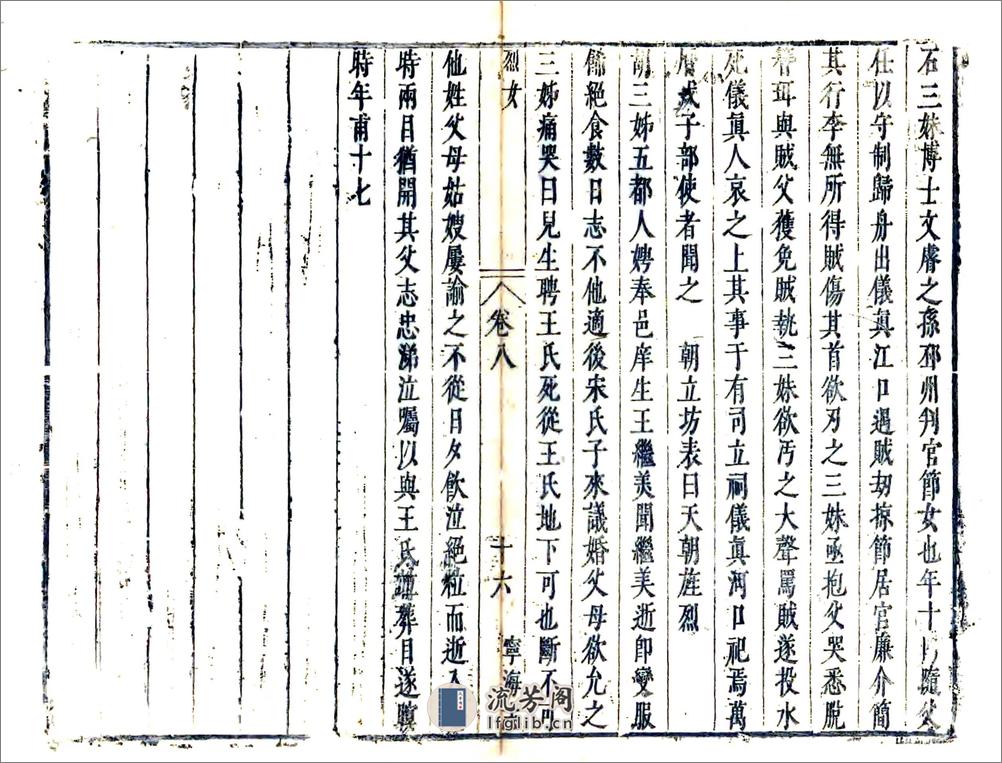 石三妹博士文睿之孫邳州判官節女也年十隨父
任以守制歸舟出儀眞江口遇賊刼掠節居官廉介簡
其行李無所得賊傷其首欲刃之三妹亟抱父哭悉脫
簪珥與賊父獲免賊執三妹欲汚之大聲罵賊遂投水
死儀眞人哀之上其事于有司立祠儀眞河口祀焉萬
曆戊子部使者聞之 朝立坊表曰天朝旌烈
胡三姊五都人娉奉邑庠生王繼美聞繼美逝卽變服
飾絕食數日志不他適後宋氏子來議婚父母欲允之
烈女 卷八 十六 寧海
三姊痛哭曰兒生聘王氏死從王氏地下可也斷不可
他姓父母姑嫂屢諭之不從日夕飮泣絕粒而逝入
時兩目猶開其父志忠涕泣囑以與王氏並葬目遂瞑
時年甫十七
流芳阁
lfglib.cn